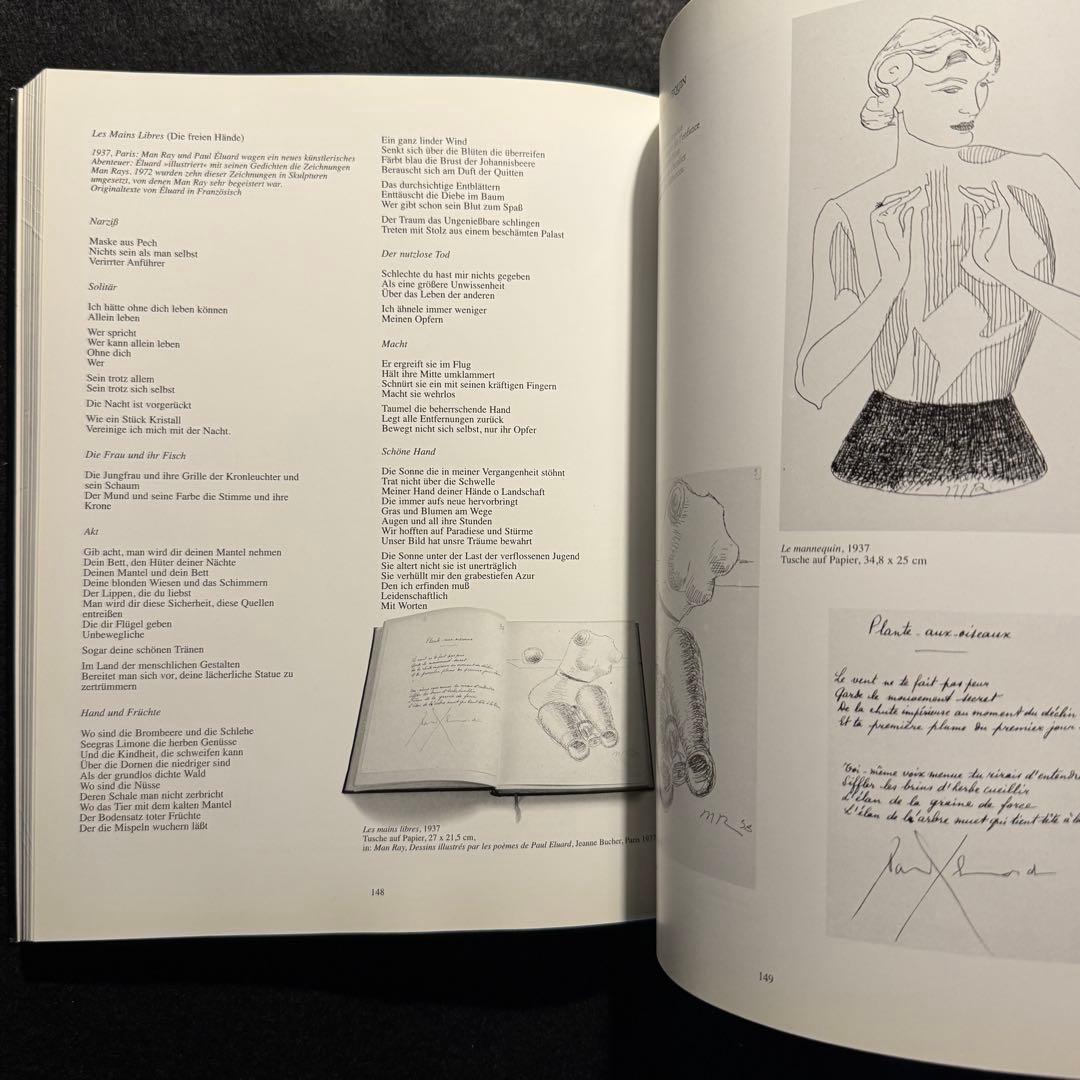 Les Mains Libres (Die freien Hände)
1937, Paris: Man Ray und Paul Éluard wagen ein neues künstlerisches
Abenteuer: Éluard »illustriert« mit seinen Gedichten die Zeichnungen
Man Rays. 1972 wurden zehn dieser Zeichnungen in Skulpturen
umgesetzt, von denen Man Ray sehr begeistert war.
Originaltexte von Éluard in Französisch
Narziß
Maske aus Pech
Nichts sein als man selbst
Verirrter Anführer
Solitär
Ich hätte ohne dich leben können
Allein leben
Wer spricht
Wer kann allein leben
Ohne dich
Wer
Sein trotz allem
Sein trotz sich selbst
Die Nacht ist vorgerückt
Wie ein Stück Kristall
Vereinige ich mich mit der Nacht.
Die Frau und ihr Fisch
Die Jungfrau und ihre Grille der Kronleuchter und
sein Schaum
Der Mund und seine Farbe die Stimme und ihre
Krone
Akt
Gib acht, man wird dir deinen Mantel nehmen
Dein Bett, den Hüter deiner Nächte
Deinen Mantel und dein Bett
Deine blonden Wiesen und das Schimmern
Der Lippen, die du liebst
Man wird dir diese Sicherheit, diese Quellen
entreißen
Die dir Flügel geben
Unbewegliche
Sogar deine schönen Tränen
Im Land der menschlichen Gestalten
Bereitet man sich vor, deine lächerliche Statue zu
zertrümmern
Hand und Früchte
Wo sind die Brombeere und die Schlehe
Seegras Limone die herben Genüsse
Und die Kindheit, die schweifen kann
Über die Dornen die niedriger sind
Als der grundlos dichte Wald
Wo sind die Nüsse
Deren Schale man nicht zerbricht
Wo das Tier mit dem kalten Mantel
Der Bodensatz toter Früchte
Der die Mispeln wuchern läßt
Ein ganz linder Wind
Senkt sich über die Blüten die überreifen
Färbt blau die Brust der Johannisbeere
Berauscht sich am Duft der Quitten
Das durchsichtige Entblättern
Enttäuscht die Diebe im Baum
Wer gibt schon sein Blut zum Spaß
Der Traum das Ungenießbare schlingen
Treten mit Stolz aus einem beschämten Palast
Der nutzlose Tod
Schlechte du hast mir nichts gegeben
Als eine größere Unwissenheit
Über das Leben der anderen
Ich ähnele immer weniger
Meinen Opfern
Macht
Er ergreift sie im Flug
Hält ihre Mitte umklammert
Schnürt sie ein mit seinen kräftigen Fingern
Macht sie wehrlos
Taumel die beherrschende Hand
Legt alle Entfernungen zurück
Bewegt nicht sich selbst, nur ihr Opfer
Schöne Hand
Die Sonne die in meiner Vergangenheit stöhnt
Trat nicht über die Schwelle
Meiner Hand deiner Hände o Landschaft
Die immer aufs neue hervorbringt
Gras und Blumen am Wege
Augen und all ihre Stunden
Wir hofften auf Paradiese und Stürme
Unser Bild hat unsre Träume bewahrt
Die Sonne unter der Last der verflossenen Jugend
Sie altert nicht sie ist unerträglich
Sie verhüllt mir den grabestiefen Azur
Den ich erfinden muß
Leidenschaftlich
Mit Worten
Plante-aux-oiseaux
Les mains libres, 1937
Tusche auf Papier, 27 x 21,5 cm,
in: Man Ray, Dessins illustrés par les poèmes de Paul Eluard, Jeanne Bucher, Paris 1937
148
enfance
MR
MR 36
Le mannequin, 1937
Tusche auf Papier, 34,8 x 25 cm
Plante-aux-oiseaux
Le vent ne te fait pas peur
Garde le mouvement secret
De la chute impérieuse au moment du déclin
Et ta première plume du premier jour
Toi-même voix menue tu rirais d'entendre
Siffler les brins d'herbe cueillir
L'élan de la graine de force
L'élan de l'arbre muet qui tient tête à
Paul Eluard
149